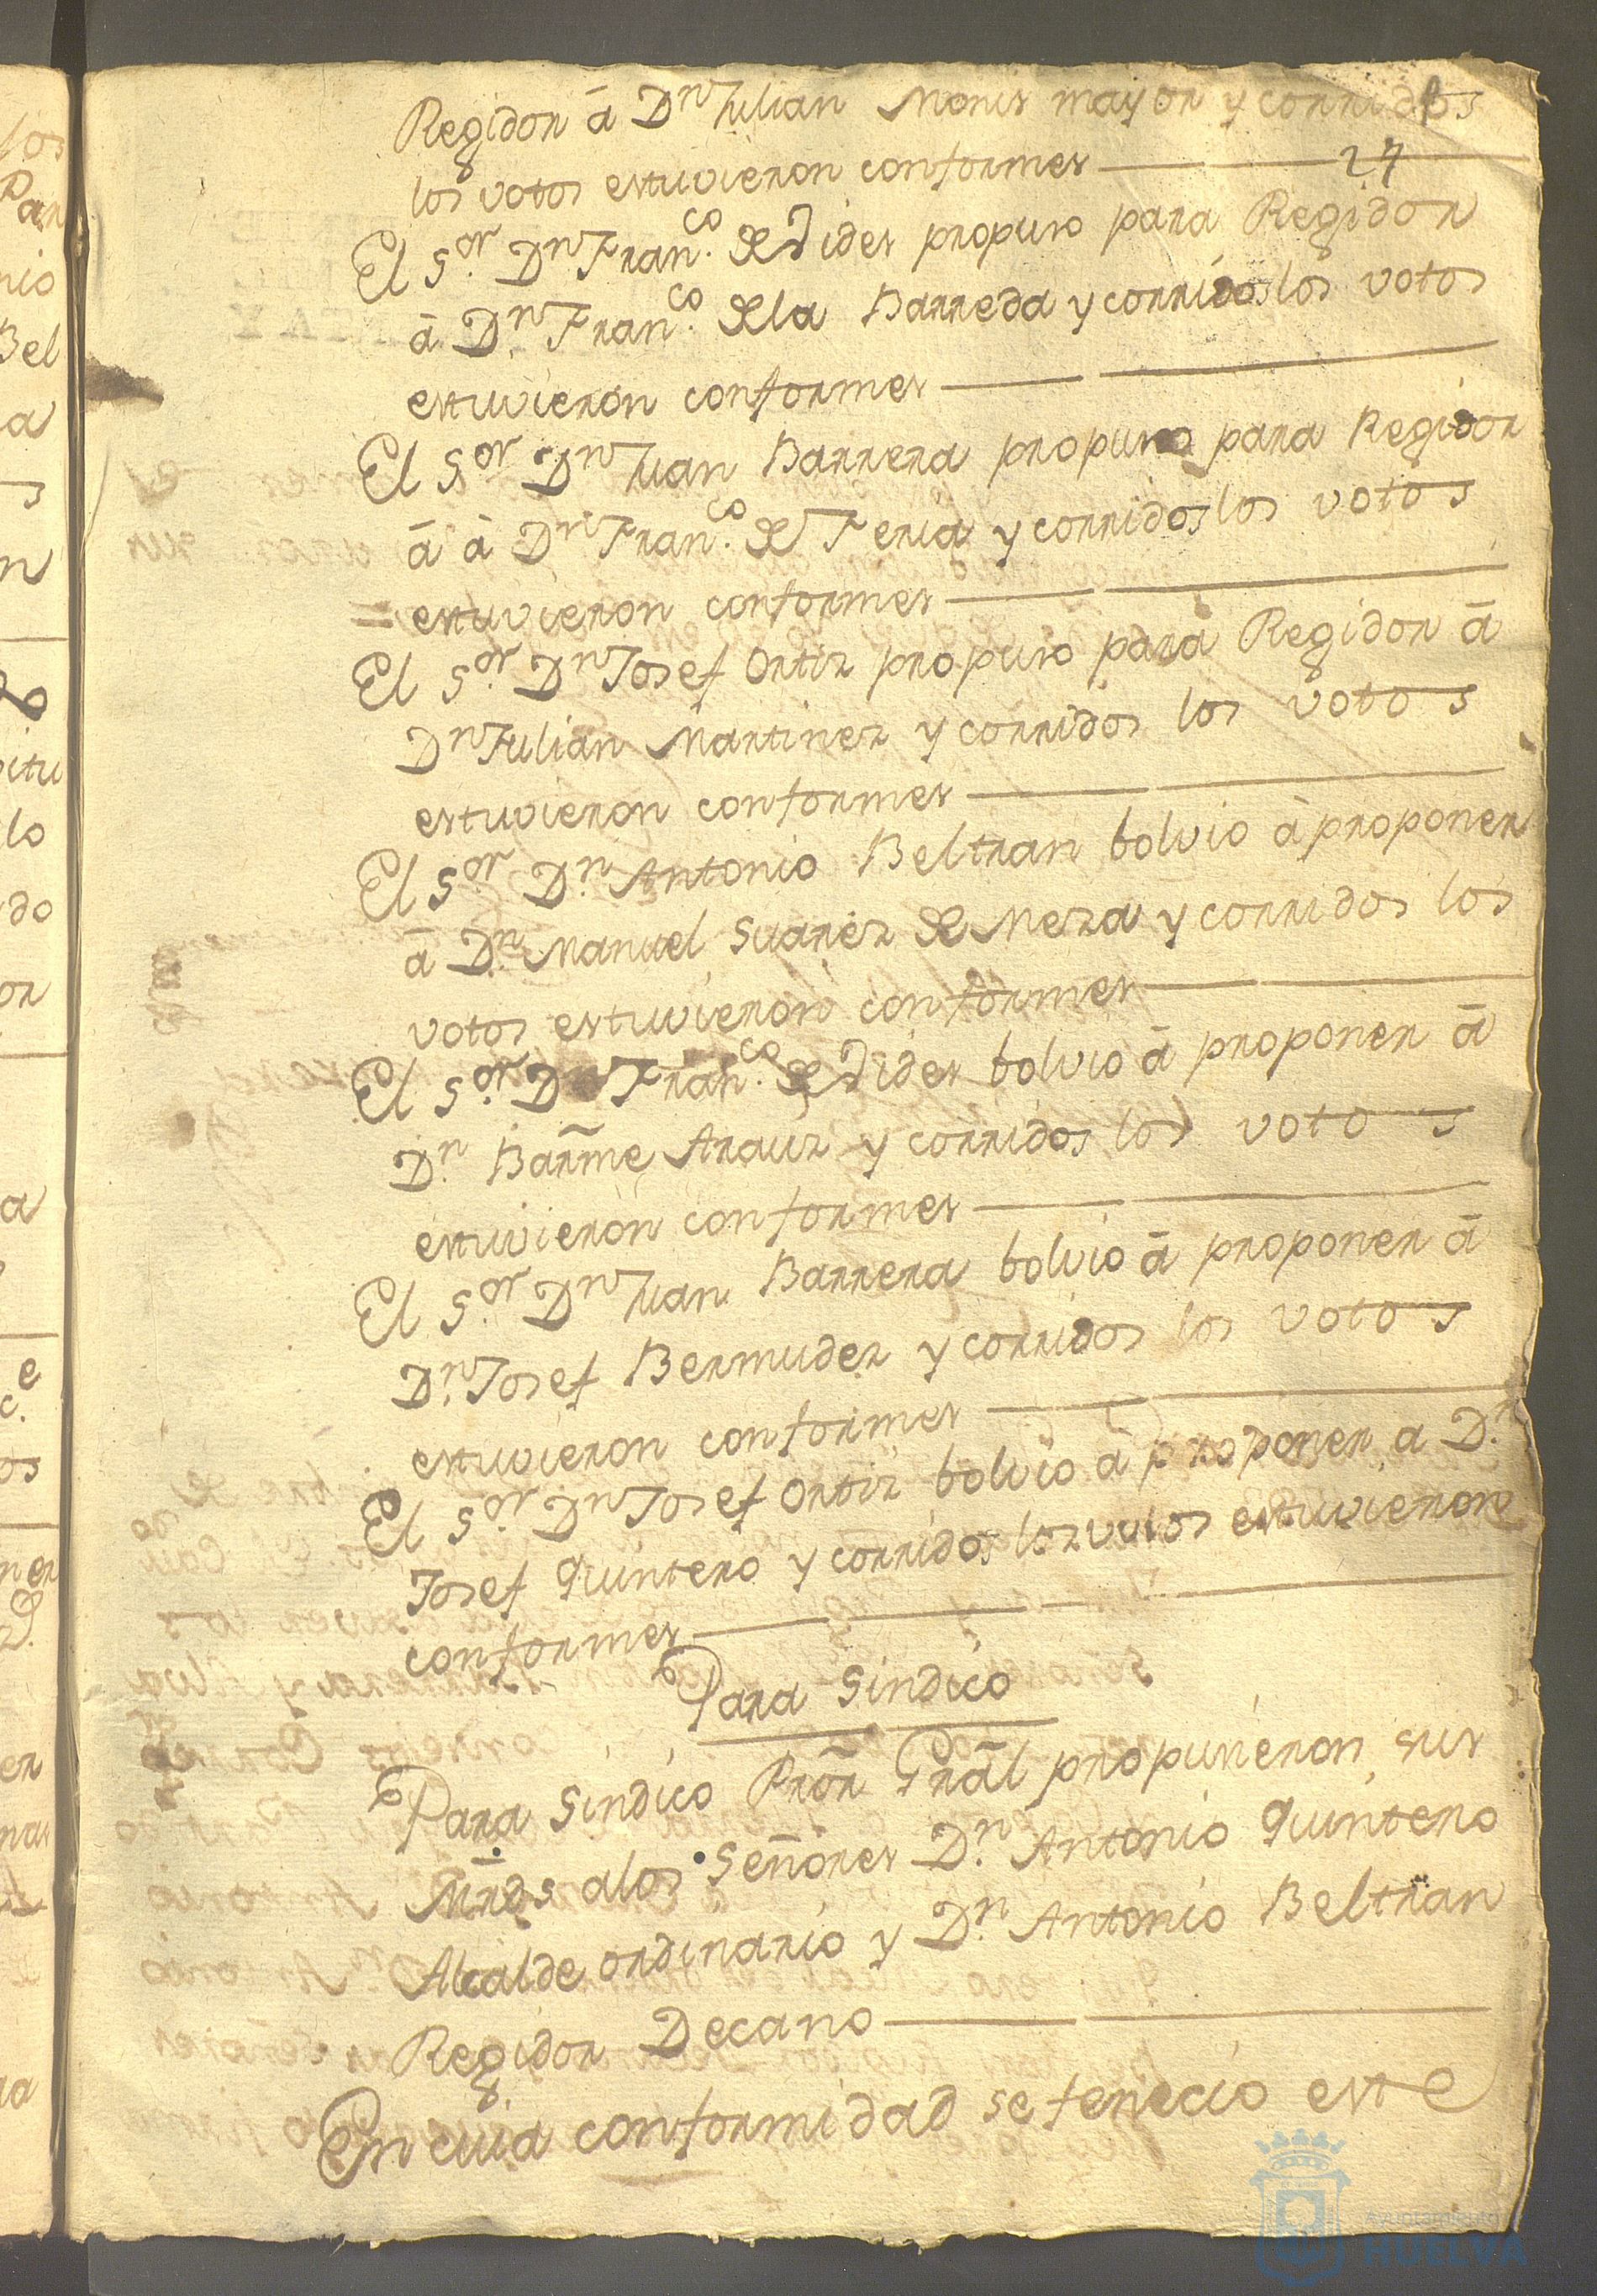 Regidor â Dn Julian Monis mayor y corridos
los votos estuvieron conformes 27
El Sor. Dn Franco. de Vides propuso para Regidor
â Dn. Franco. dela Barreda y corridos los votos
estuvieron conformes
El Sor Dn Juan Barrera propuso para Regidor
â â Dn Franco. de Feria y corridos los votos
= estuvieron conformes
El Sor. Dn Josef Ortiz propuso para Regidor â
Dn Julian Martinez y corridos los votos
estuvieron conformes
El Sor Dn. Antonio Beltran bolvio â proponer
â Dn. Manuel Suarez de Meza y corridos los
votos estuvieron conformes
El Sor. Dn Franco. de Vides bolvio â proponer â
Dn. Barme Arauz y corridos los votos
estuvieron conformes
El Sor. Dn Juan Barrera bolvio â proponer â
Dn. Josef Bermudez y corridos los votos
estuvieron conformes
El Sor. Dn Josef Ortiz bolvio â proponer a Dn.
Josef Quintero y corridos los votos estuvieron
conformes
Para Sindico
Para Sindico Prõr Grãl propusieron sus
Mrds alos Señores Dn. Antonio Quintero
Alcalde ordinario y Dn. Antonio Beltran
Regidor Decano
En cuia conformidad se fenecio este
Ayuntamiento
HUELVA